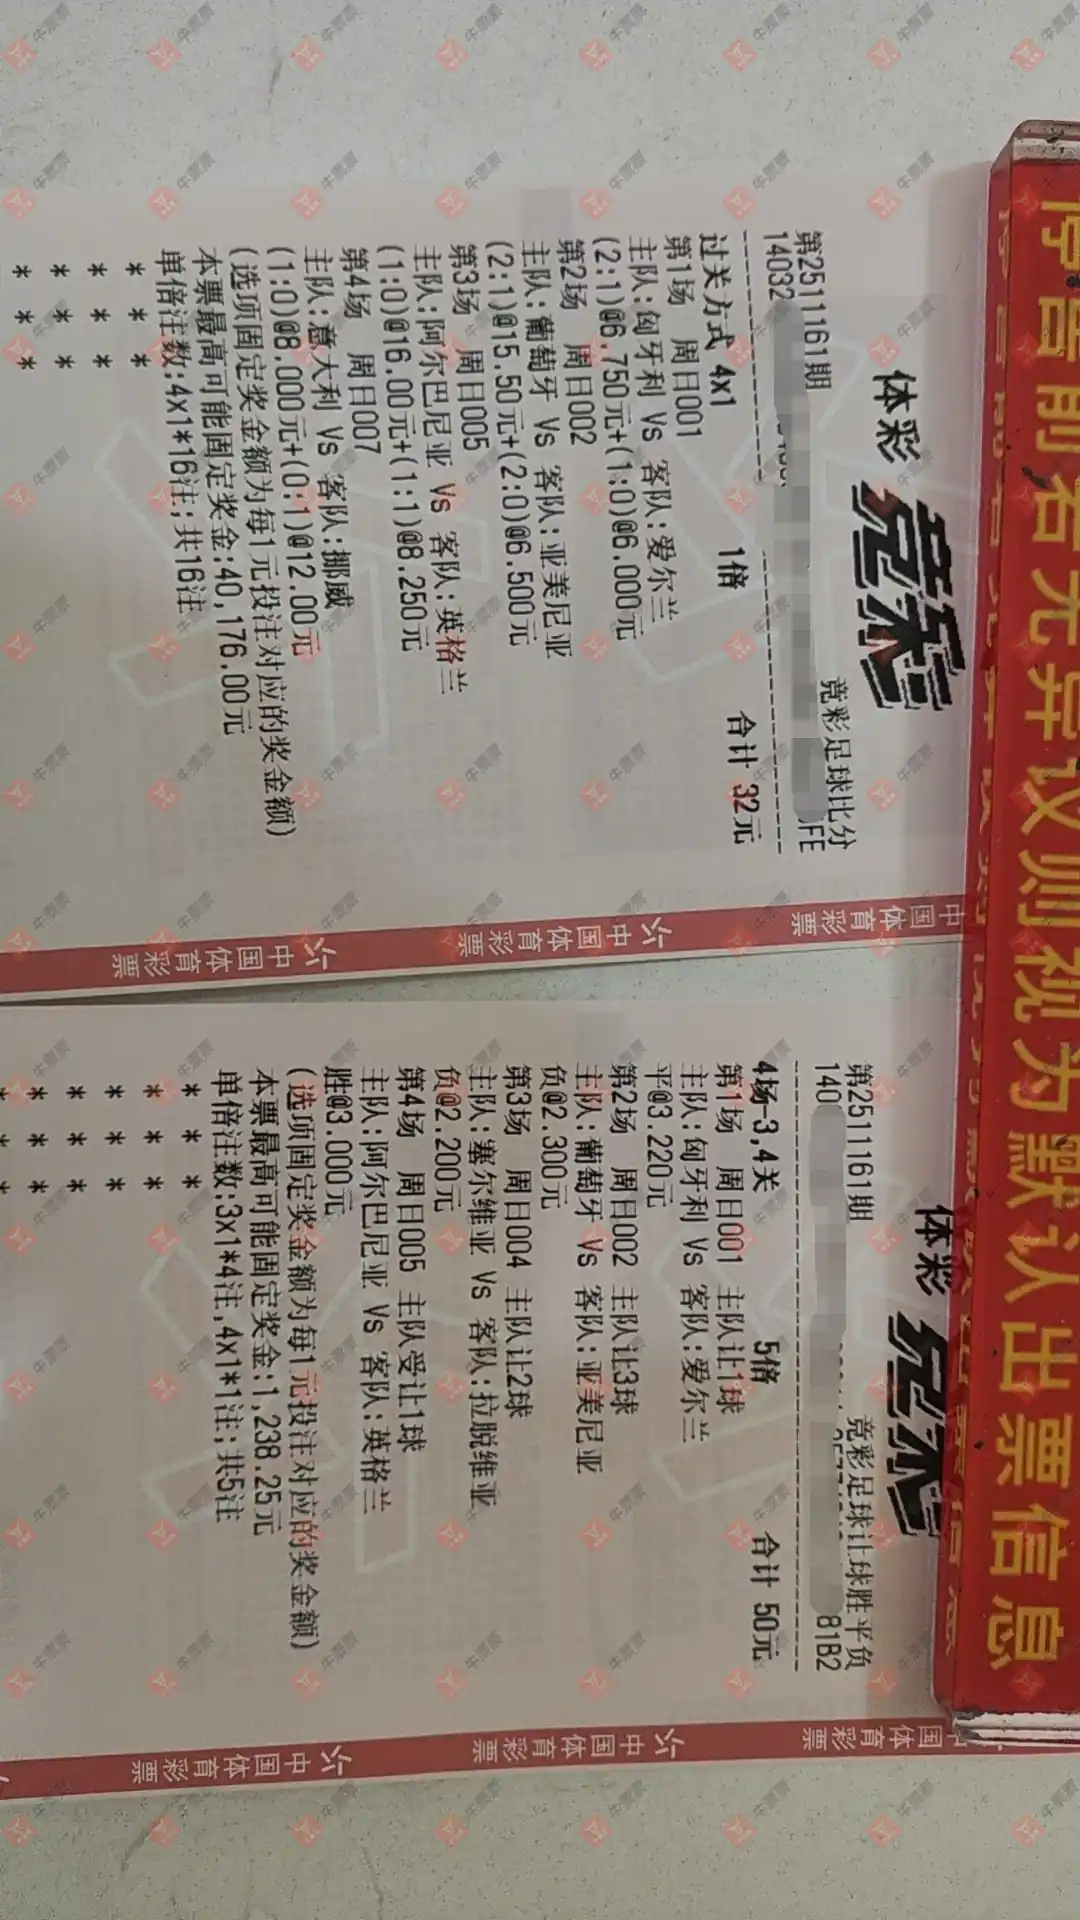 体彩 竞彩
竞彩足球比分
第2511161期
14032
FE
过关方式 4x1 1倍 合计 32元
第1场 周日001
主队:匈牙利 Vs 客队:爱尔兰
(2:1)@6.750元+(1:0)@6.000元
第2场 周日002
主队:葡萄牙 Vs 客队:亚美尼亚
(2:1)@15.50元+(2:0)@6.500元
第3场 周日005
主队:阿尔巴尼亚 Vs 客队:英格兰
(1:0)@16.00元+(1:1)@8.250元
第4场 周日007
主队:意大利 Vs 客队:挪威
(1:0)@8.000元+(0:1)@12.00元
(选项固定奖金额为每1元投注对应的奖金额)
本票最高可能固定奖金:40,176.00元
单倍注数:4x1*16注;共16注
* * *
* * *
* * *
* * *
中国体育彩票
中国体育彩票
中国体育彩票
体彩 竞彩
竞彩足球让球胜平负
第2511161期
140
81B2
4场-3,4关 5倍 合计 50元
第1场 周日001 主队让1球
主队:匈牙利 Vs 客队:爱尔兰
平@3.220元
第2场 周日002 主队让3球
主队:葡萄牙 Vs 客队:亚美尼亚
负@2.300元
第3场 周日004 主队让2球
主队:塞尔维亚 Vs 客队:拉脱维亚
负@2.200元
第4场 周日005 主队受让1球
主队:阿尔巴尼亚 Vs 客队:英格兰
胜@3.000元
(选项固定奖金额为每1元投注对应的奖金额)
本票最高可能固定奖金:1,238.25元
单倍注数:3x1*4注,4x1*1注;共5注
* * *
* * *
* * *
* * *
* * *
* * *
国体育彩票
中国体育彩票
中国体育彩票
停售前若无异议则视为默认出票信息
牛票票